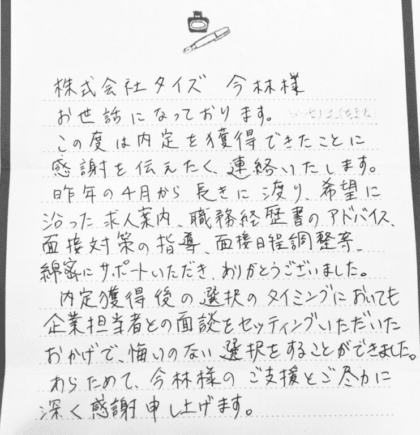 株式会社タイズ 今林様
お世話になっております。
この度は内定を獲得できたことに
感謝を伝えたく、連絡いたします。
昨年の4月から長きに渡り、希望に
沿った求人案内、職務経歴書のアドバイス、
面接対策の指導、面接日程調整等、
綿密にサポートいただき、ありがとうございました。
内定獲得後の選択のタイミングにおいても
企業担当者との面談をセッティングいただいた
おかげで、悔いのない選択をすることができました。
あらためて、今林様のご支援とご尽力に
深く感謝申し上げます。